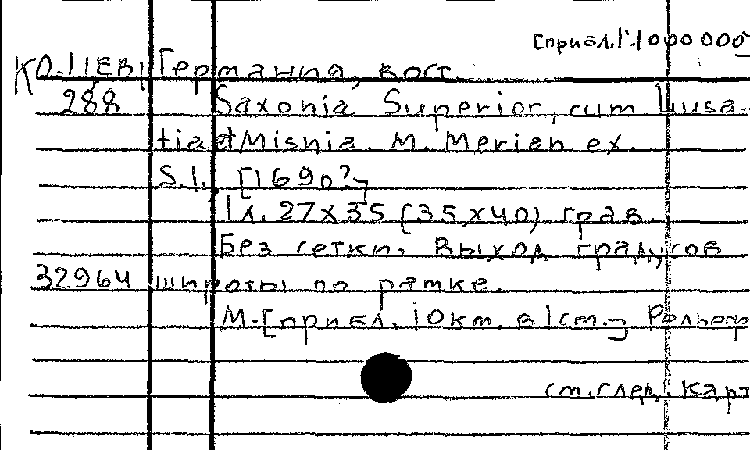 [прибл. 1:1000000
Ко. 1/ЕВ, Германия, вост.
288 Saxonia Superior, cum Lusa-
tia et Misnia. M. Merian ex.
S.l. [1690?]
1 л. 27x35 (35,x40) грав.
Без сетки. Выход градусов
32964 широты по рамке.
М-[прибл. 10км. в 1см.] Рельеф
см. след. карт